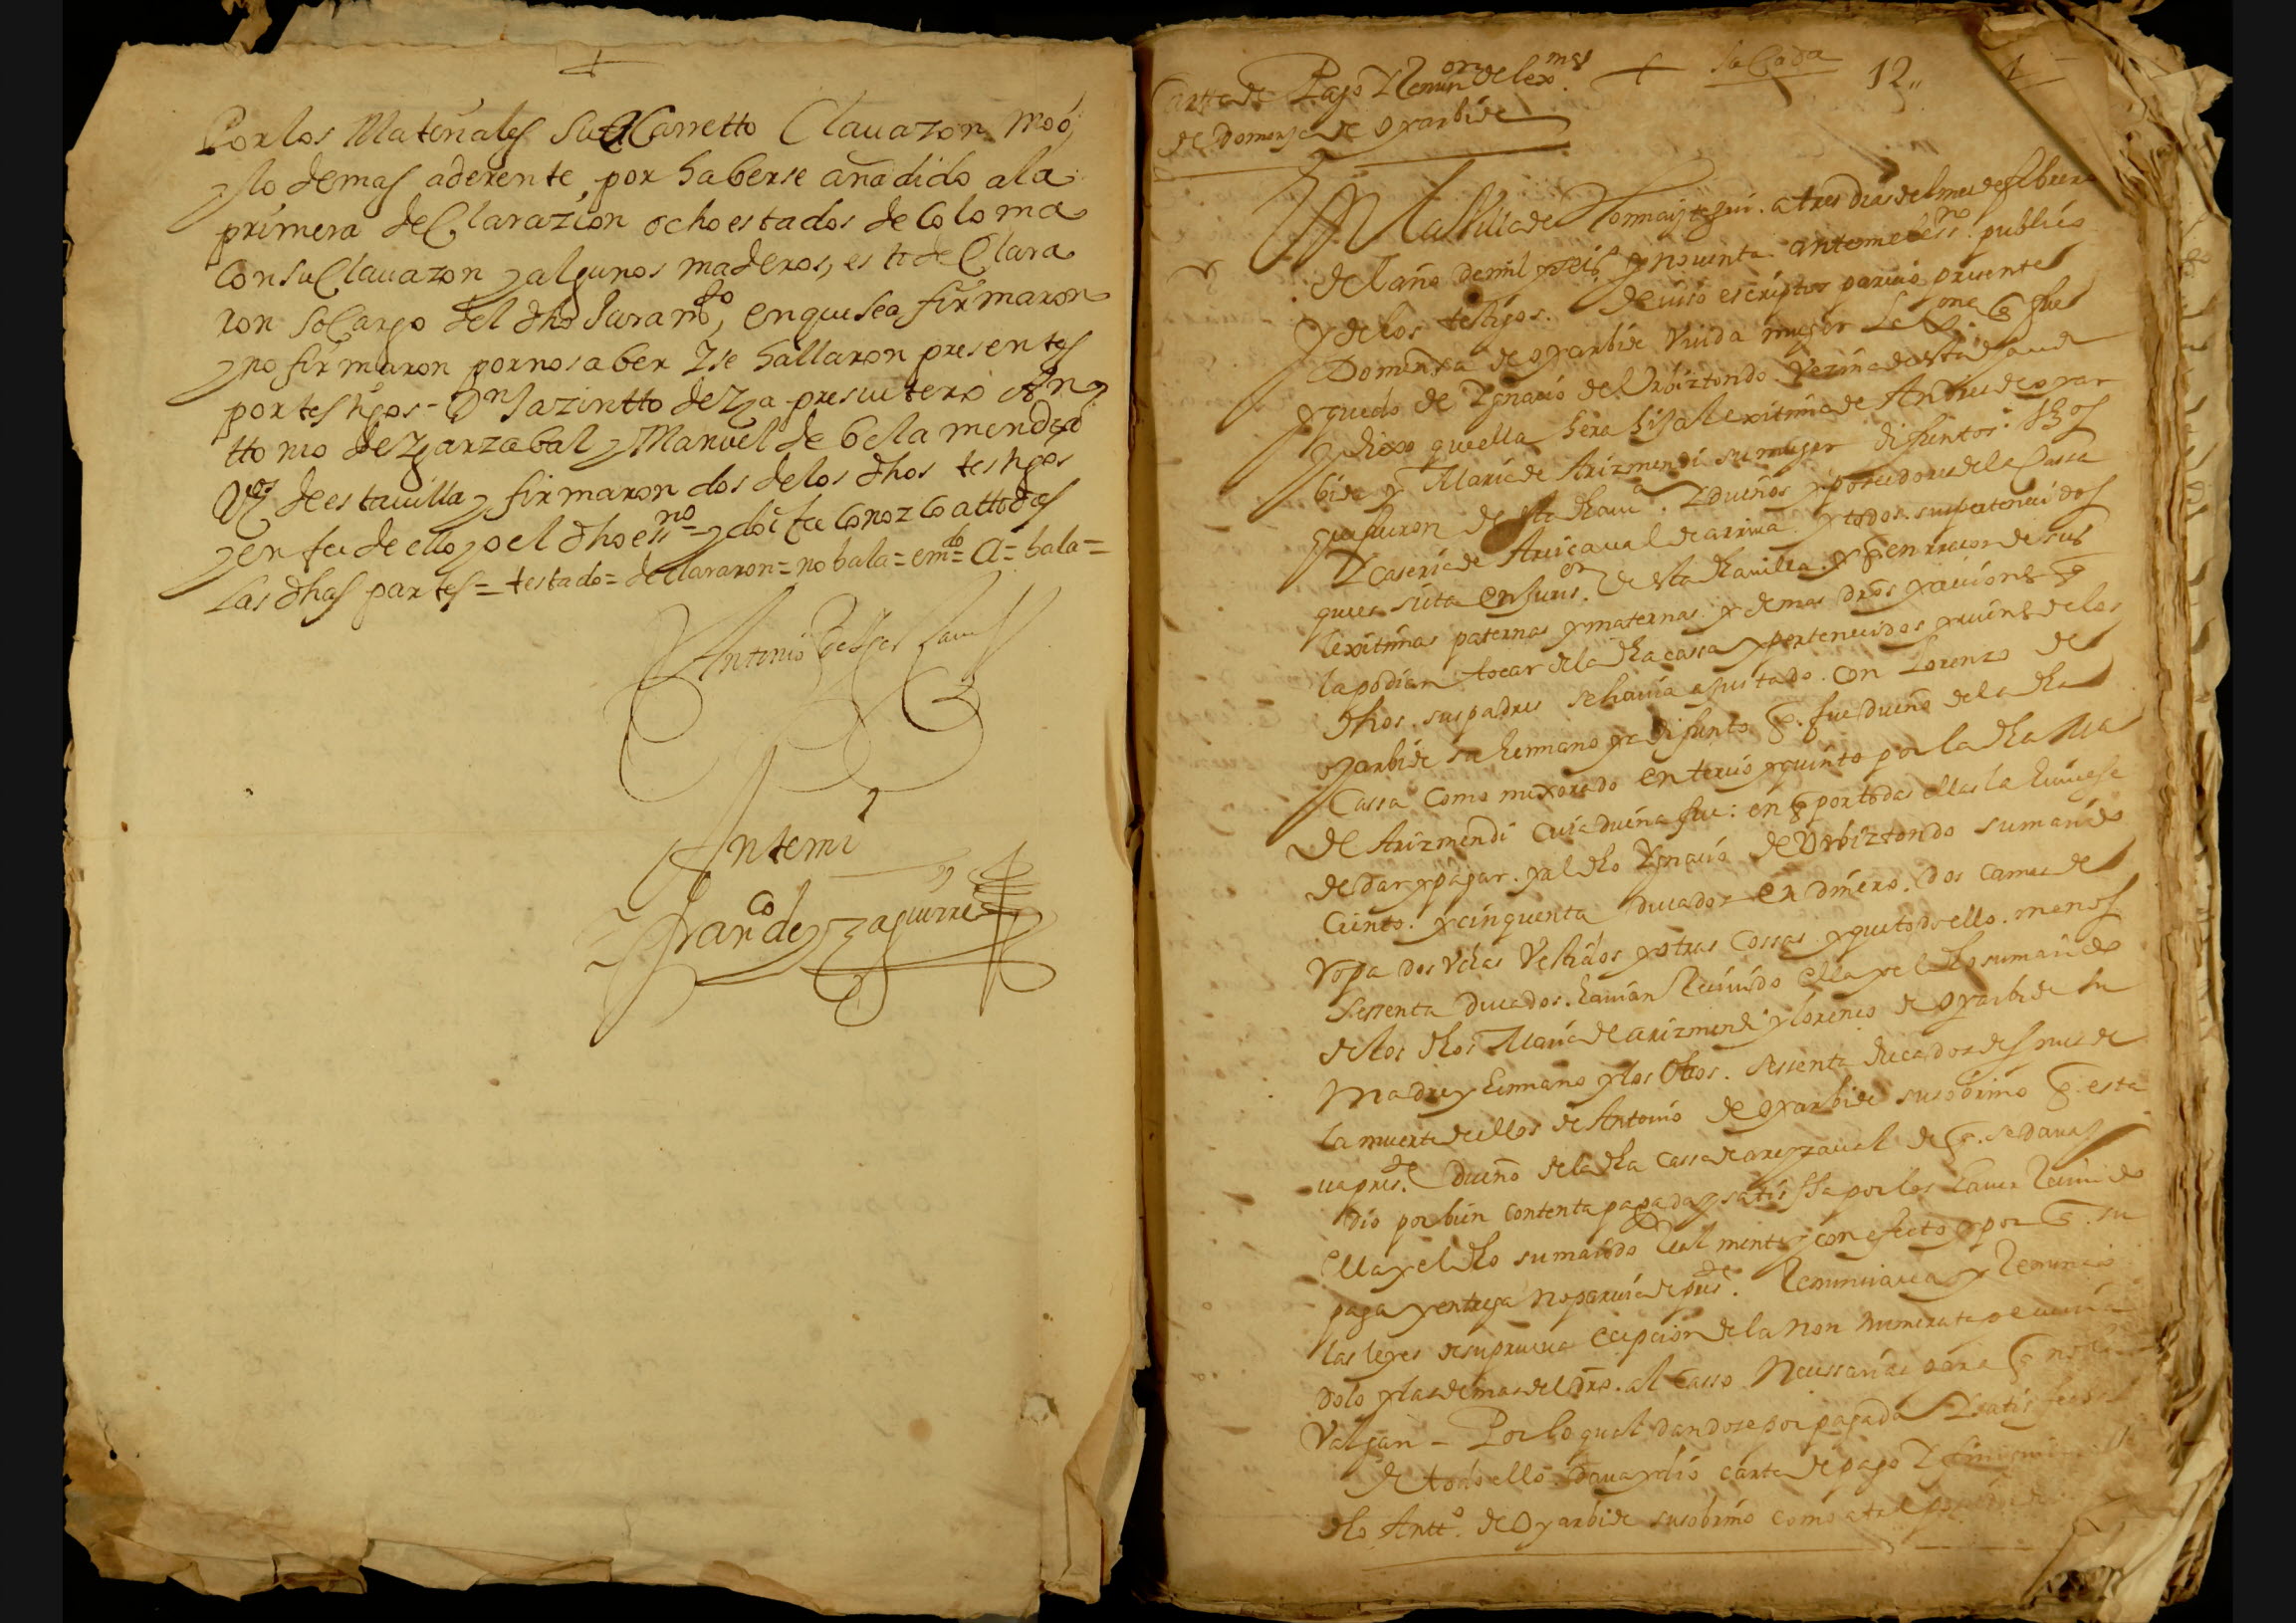 Por los Materiales su Acarretto Clauazon Moõ,
y lo demas aderente por haberse añadido ala
primera deClarazion ocho estados de coloma
Con su Clauazon y algunos maderos, esto deClara
ron so Cargo del dho Juramto, en que se a firmaron
y no firmaron por no saber Y se hallaron presentes
por testigos - Dn Jazintto de Za presuitero An
ttonio de Yzarzabal y Manuel de belamendia
Vos de esta uilla y firmaron dos de los dhos testigos
y en fee de ello yo el dho essno y doi fee Conozco a ttodos
las dhas partes = testado = declararon = no bala = emdo = A = bala =
Antonio de
Antemi
Franco de Yzaguirre
Cartta de Pago Y Renunon de lexmas + saCada 12,, 1
de Domenja de oyarbide
En La Villa de Hormaiztegui. a tres dias del mes de febrero
del año de mil y seis y nouenta. ante me el essno publico
y de los testigos. de iuso escriptos pareçio presente
Domenja de oyarbide Viuda muger Lex que fue
y quedo de Ygnaçio de Urbiztondo Vezina de esta dha uª
y dixo que ella hera hija lexitima de Andres de oyar
bide y Maria de Arizmendi su muger difuntos. Vos
que fueron de esta dha uiª. Y dueños y poseedores de la Cassa
Y caseria de Areiçaual de arriua y todos sus pertenecidos
que es sita en Juris.on de esta dha uilla y que en raçon de sus
lexitimas paternas y maternas y demas dros y acciones que
la podian tocar de la dha cassa y pertenecidos y uienes de los
dhos. sus padres se hauia ajustado. con Lorenzo de
oyarbide su hermano ya difunto q. fue dueño de la dha
Cassa Como mexorado en tercio y quinto por la dha Mª
de Arizmendi cuia dueña fue: en q por todas ellas la huuiese
de dar y pagar. y al dho Ygnaçio de Urbiztondo su marido
Ciento. y cinquenta ducados en dinero. dos camas de
ropa dos Vestidos y otras cossas y que todo ello. menos
Sessenta ducados. hauian Reciuido ella y el dho su marido
de los dhos Maria de arizmendi y lorenço de oyarbide su
Madre y hermano y los dhos. sessenta ducados despues de
la muerte de ellos de Antonio de oyarbide su sobrino q. esta
ua press.te Dueño de la dha cassa de areyzaual de q. se daua y
dio por bien contenta pagada y satisffha por los hauer Reciuido
ella y el dho su marido Realmente y con efecto y por q. su
paga y entrega no pareçia de pres.te Renunciaua y Renuncio
las leyes de su prueua ecepcion de la non numerata pecunia
dolo y las demas del dro. al casso Necessarias para q no la
Valgan - Por lo qual dandose por pagada Y satisfecha
de todo ello daua y dio carta de pago Y finiquito
dho Anttº. de Oyarbide su sobrino como a tal